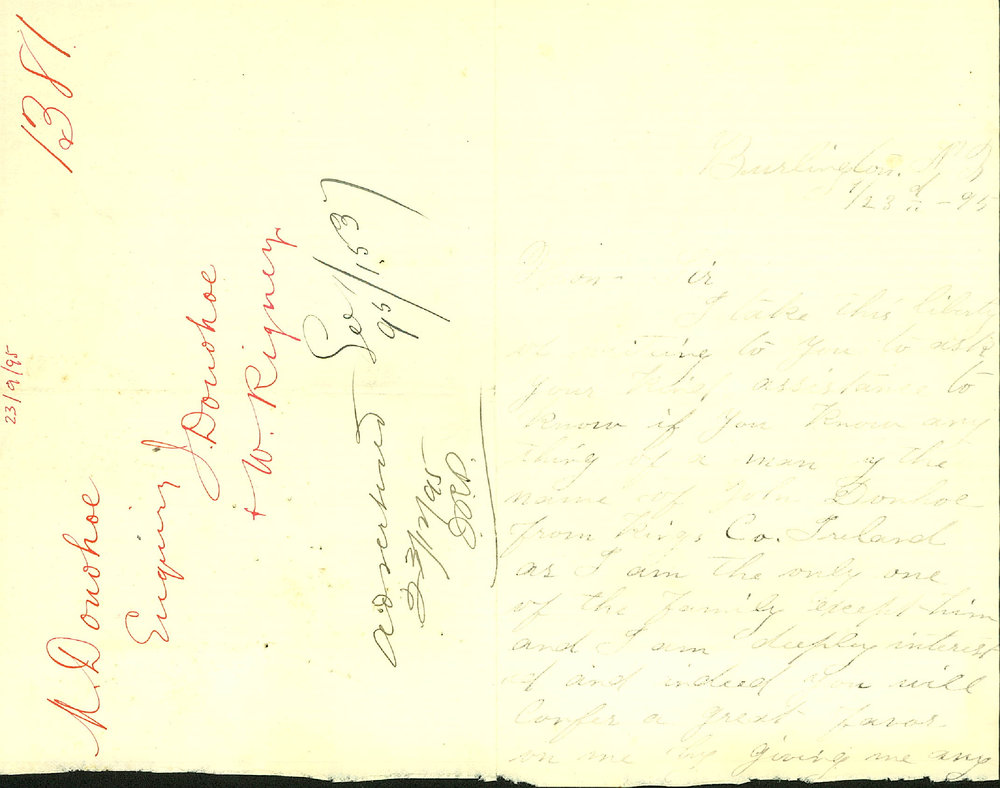 1381
23/9/95
M. Donohoe
Enquiry
J. Donohoe
+ W. Rigney
advertised
95/1537
23/12/95
Burlington
1/23 - 95
I take this liberty
writing to you to ask
your kind assistance to
know if you know any
thing of a man by the
name of John Donhoe
from Kings Co. Ireland
as I am the only one
of the Family except him
and I am deeply interest
ed and indeed you will
Confer a great favor
on me by giving me any